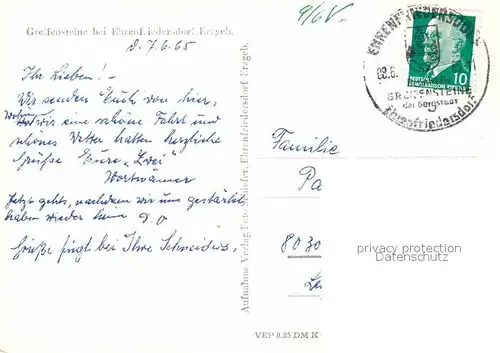 Greifensteine bei Ehrenfriedersdorf Erzgeb.
d. 7.6.65
Ihr Lieben! –
Wir senden Euch von hier,
wir eine schöne Fahrt und
schönes Wetter hatten herzliche
Grüße Eure „Zwei“
Jetzt gehts, nachdem wir uns gestärkt
haben wieder heim
Grüße fügt bei Ihre Schneiders.
Aufnahme Verlag Foto Schiefer, Ehrenfriedersdorf Erzgeb.
VEP 0.25 DM K
9/6
EHRENFRIEDERSDORF
08.6.
GREIFENSTEINE
der Bergstadt
Ehrenfriedersdorf
DEUTSCHE
DEMOKRATISCHE REPUBLIK
10
Familie
Pa
8030
privacy protection
Datenschutz